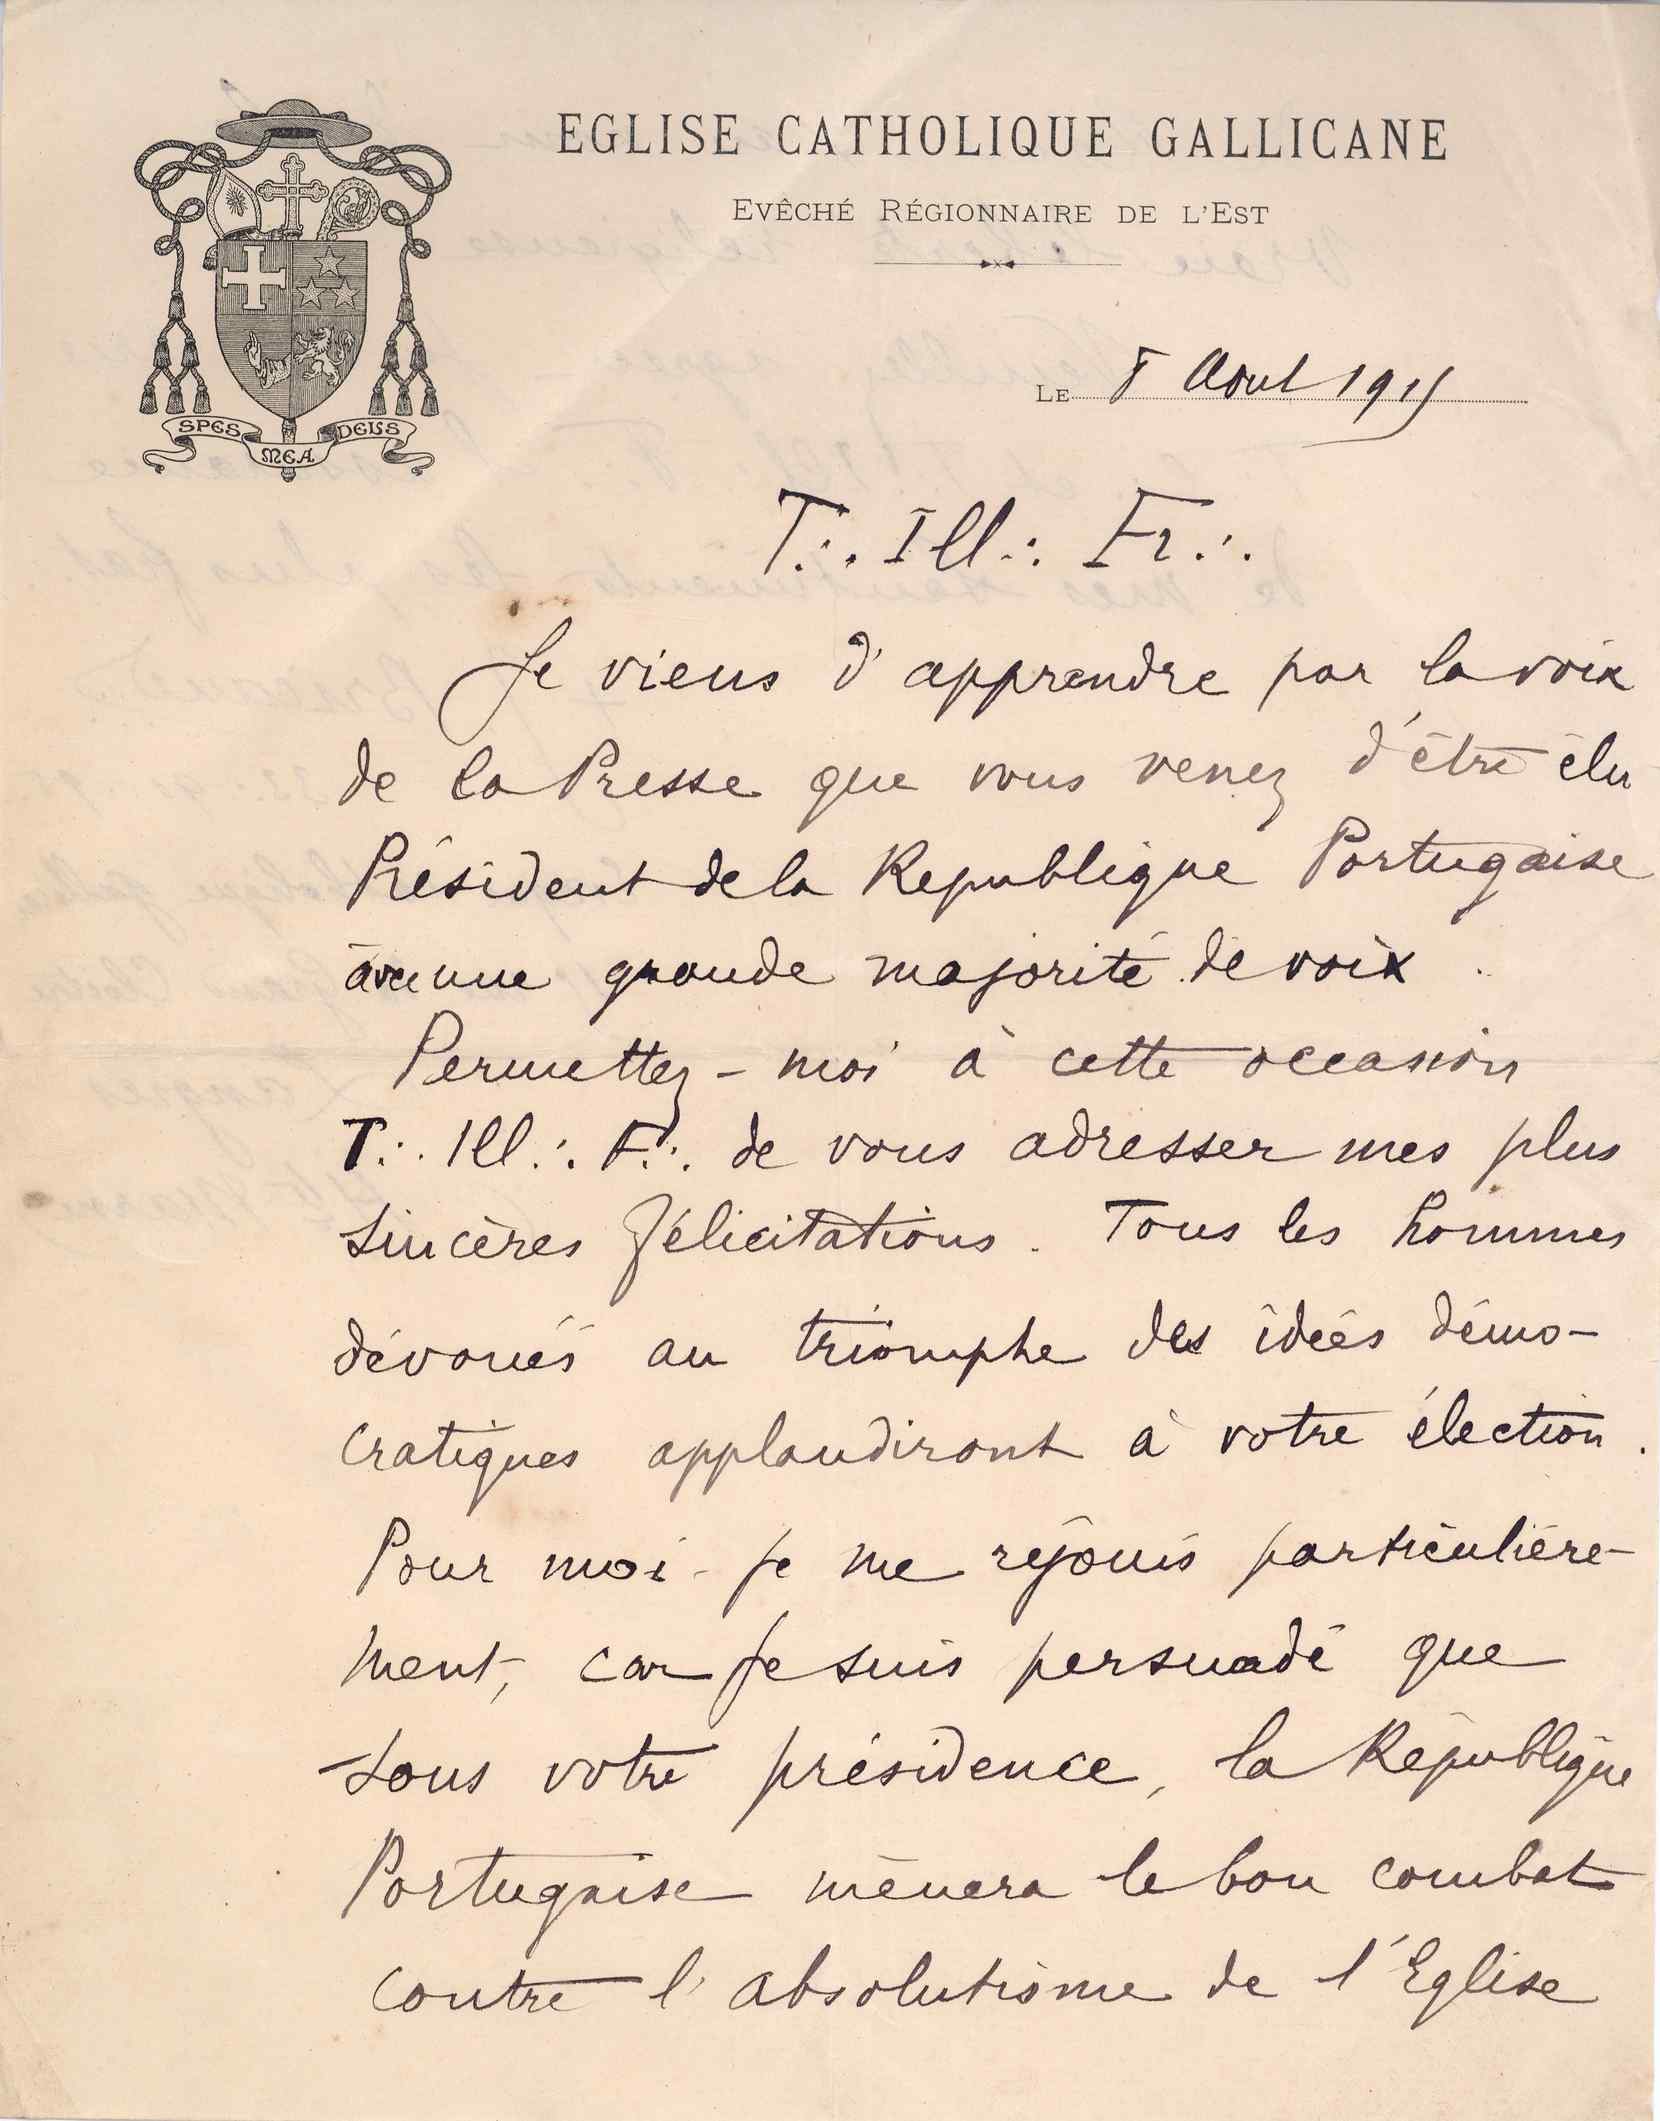 EGLISE CATHOLIQUE GALLICANE
EVÊCHÉ RÉGIONNAIRE DE L'EST
SPES MEA DEUS
LE 8 Aout 1915
T∴ Ill∴ Fr∴
Je viens d'apprendre par la voix
de la Presse que vous venez d'être élu
Président de la Republique Portugaise
avec une grande majorité de voix.
Permettez-moi à cette occasion
T∴ Ill∴ F∴ de vous adresser mes plus
sincères félicitations. Tous les hommes
dévoués au triomphe des idées démo-
cratiques applaudiront à votre élection.
Pour moi je me réjouis particulière-
ment, car je suis persuadé que
sous votre présidence, la République
Portugaise mènera le bon combat
contre l'absolutisme de l'Eglise